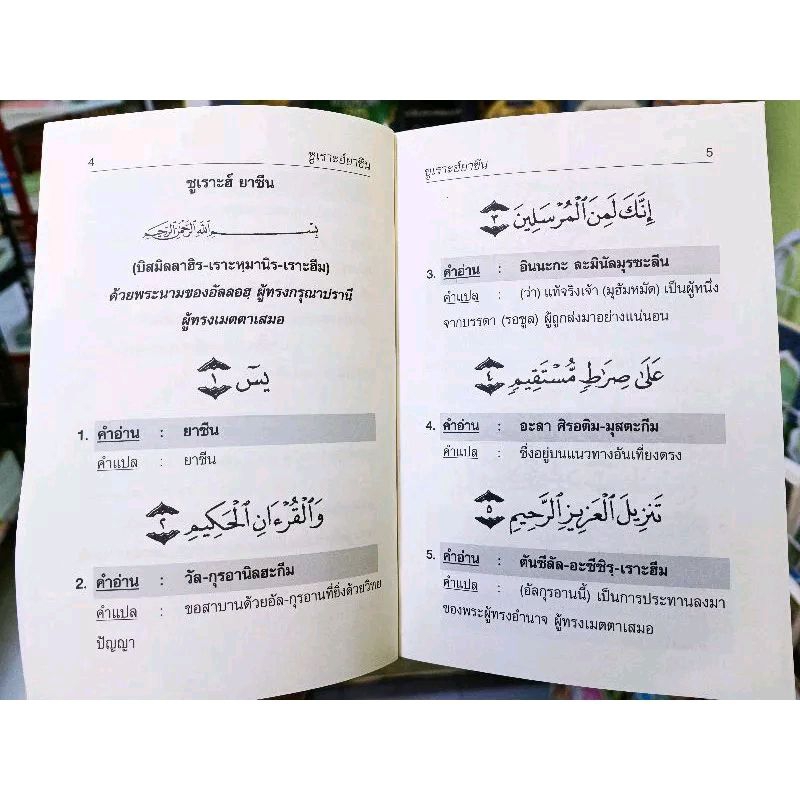 4 ซูเราะฮ์ยาซีน
ซูเราะฮ์ ยาซีน
بِسْمِ اللَّهِ الرَّحْمَٰنِ الرَّحِيمِ
(บิสมิลลาฮิร-เราะหฺมานิร-เราะฮีม)
ด้วยพระนามของอัลลอฮฺ ผู้ทรงกรุณาปรานี
ผู้ทรงเมตตาเสมอ
يسٓ ١
1. คำอ่าน : ยาซีน
คำแปล : ยาซีน
وَٱلْقُرْءَانِ ٱلْحَكِيمِ ٢
2. คำอ่าน : วัล-กุรอานิลฮะกีม
คำแปล : ขอสาบานด้วยอัล-กุรอานที่ยิ่งด้วยวิทย
ปัญญา
ซูเราะฮ์ยาซีน 5
إِنَّكَ لَمِنَ ٱلْمُرْسَلِينَ ٣
3. คำอ่าน : อินนะกะ ละมินัลมุรซะลีน
คำแปล : (ว่า) แท้จริงเจ้า (มุฮัมหมัด) เป็นผู้หนึ่ง
จากบรรดา (รอซูล) ผู้ถูกส่งมาอย่างแน่นอน
عَلَىٰ صِرَٰطٍ مُّسْتَقِيمٍ ٤
4. คำอ่าน : อะลา ศิรอติม-มุสตะกีม
คำแปล : ซึ่งอยู่บนแนวทางอันเที่ยงตรง
تَنزِيلَ ٱلْعَزِيزِ ٱلرَّحِيمِ ٥
5. คำอ่าน : ตันซีลัล-อะซีซิรฺ-เราะฮีม
คำแปล : (อัลกุรอานนี้) เป็นการประทานลงมา
ของพระผู้ทรงอำนาจ ผู้ทรงเมตตาเสมอ